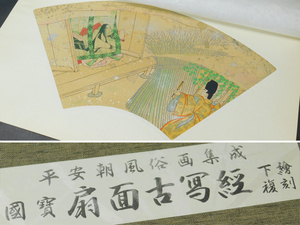 平安朝風俗画集成
國寶 扇面古寫經
翻刻
下複